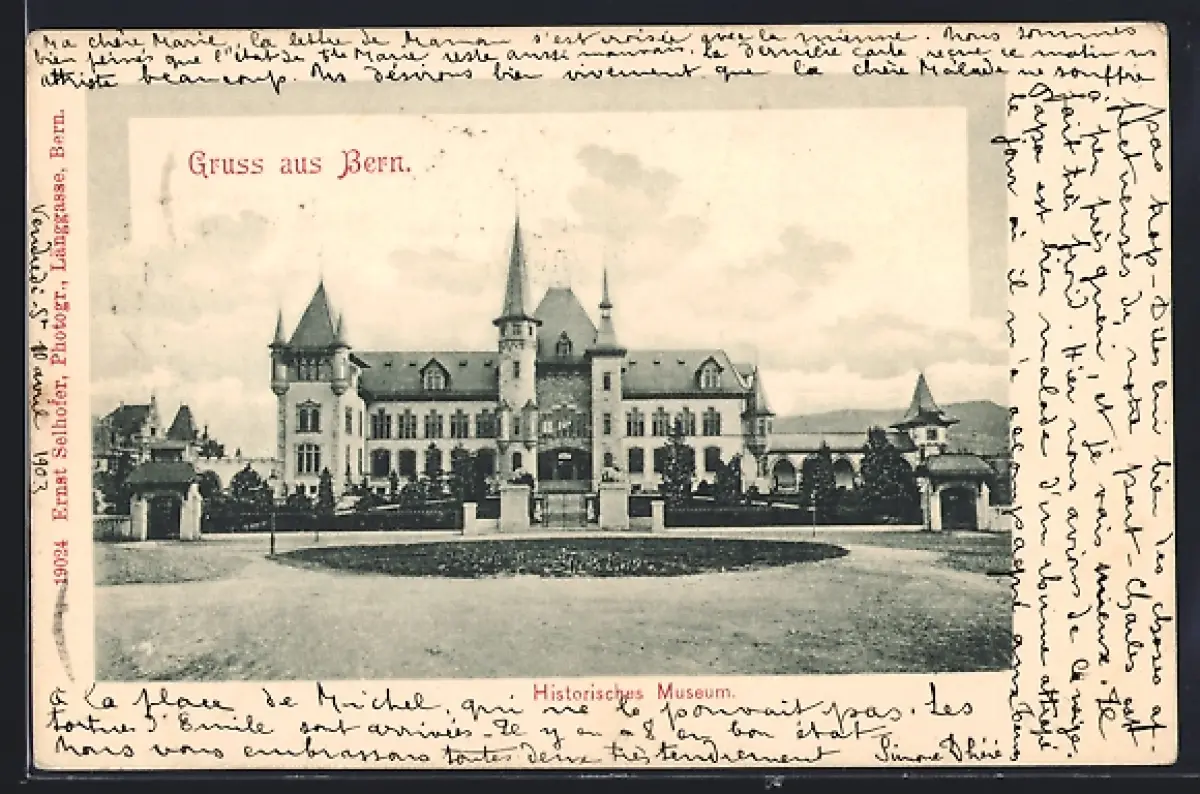 Ma chère Marie, la lettre de Maman s'est croisée avec la mienne. Nous sommes
bien peinés que l'état de Ste Marie reste aussi mauvais. La dernière carte reçue ce matin ns
attriste beaucoup. Ns désirons bien vivement que la chère Malade ne souffre
pas trop - Dites lui bien des choses af-
fectueuses de notre part - Charles est
à peu près guéri, et je vais mieux. Il
fait très froid. Hier nous avions de la neige.
Papa est bien malade d'un rhume attrapé
le jour où il m'a accompagné
Gruss aus Bern.
19024 Ernst Selhofer, Photogr., Länggasse, Bern.
Vendredi avril 1903
Historisches Museum.
à la place de Michel, qui ne le pouvait pas. Les
tortues d'Emile sont arrivées - Il y en a 8 en bon état
Nous vous embrassons toutes deux très tendrement Simone